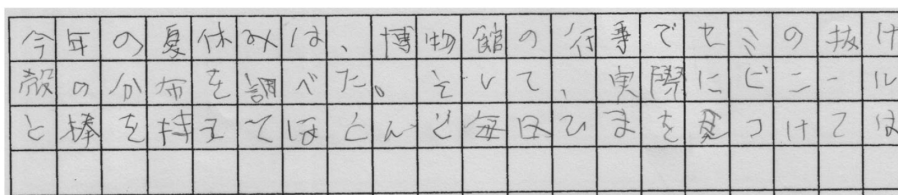 今年の夏休みは、博物館の行事でセミの抜け
殻の分布を調べた。そして、実際にビニール
と棒を持ってほとんど毎日ひまを見つけては